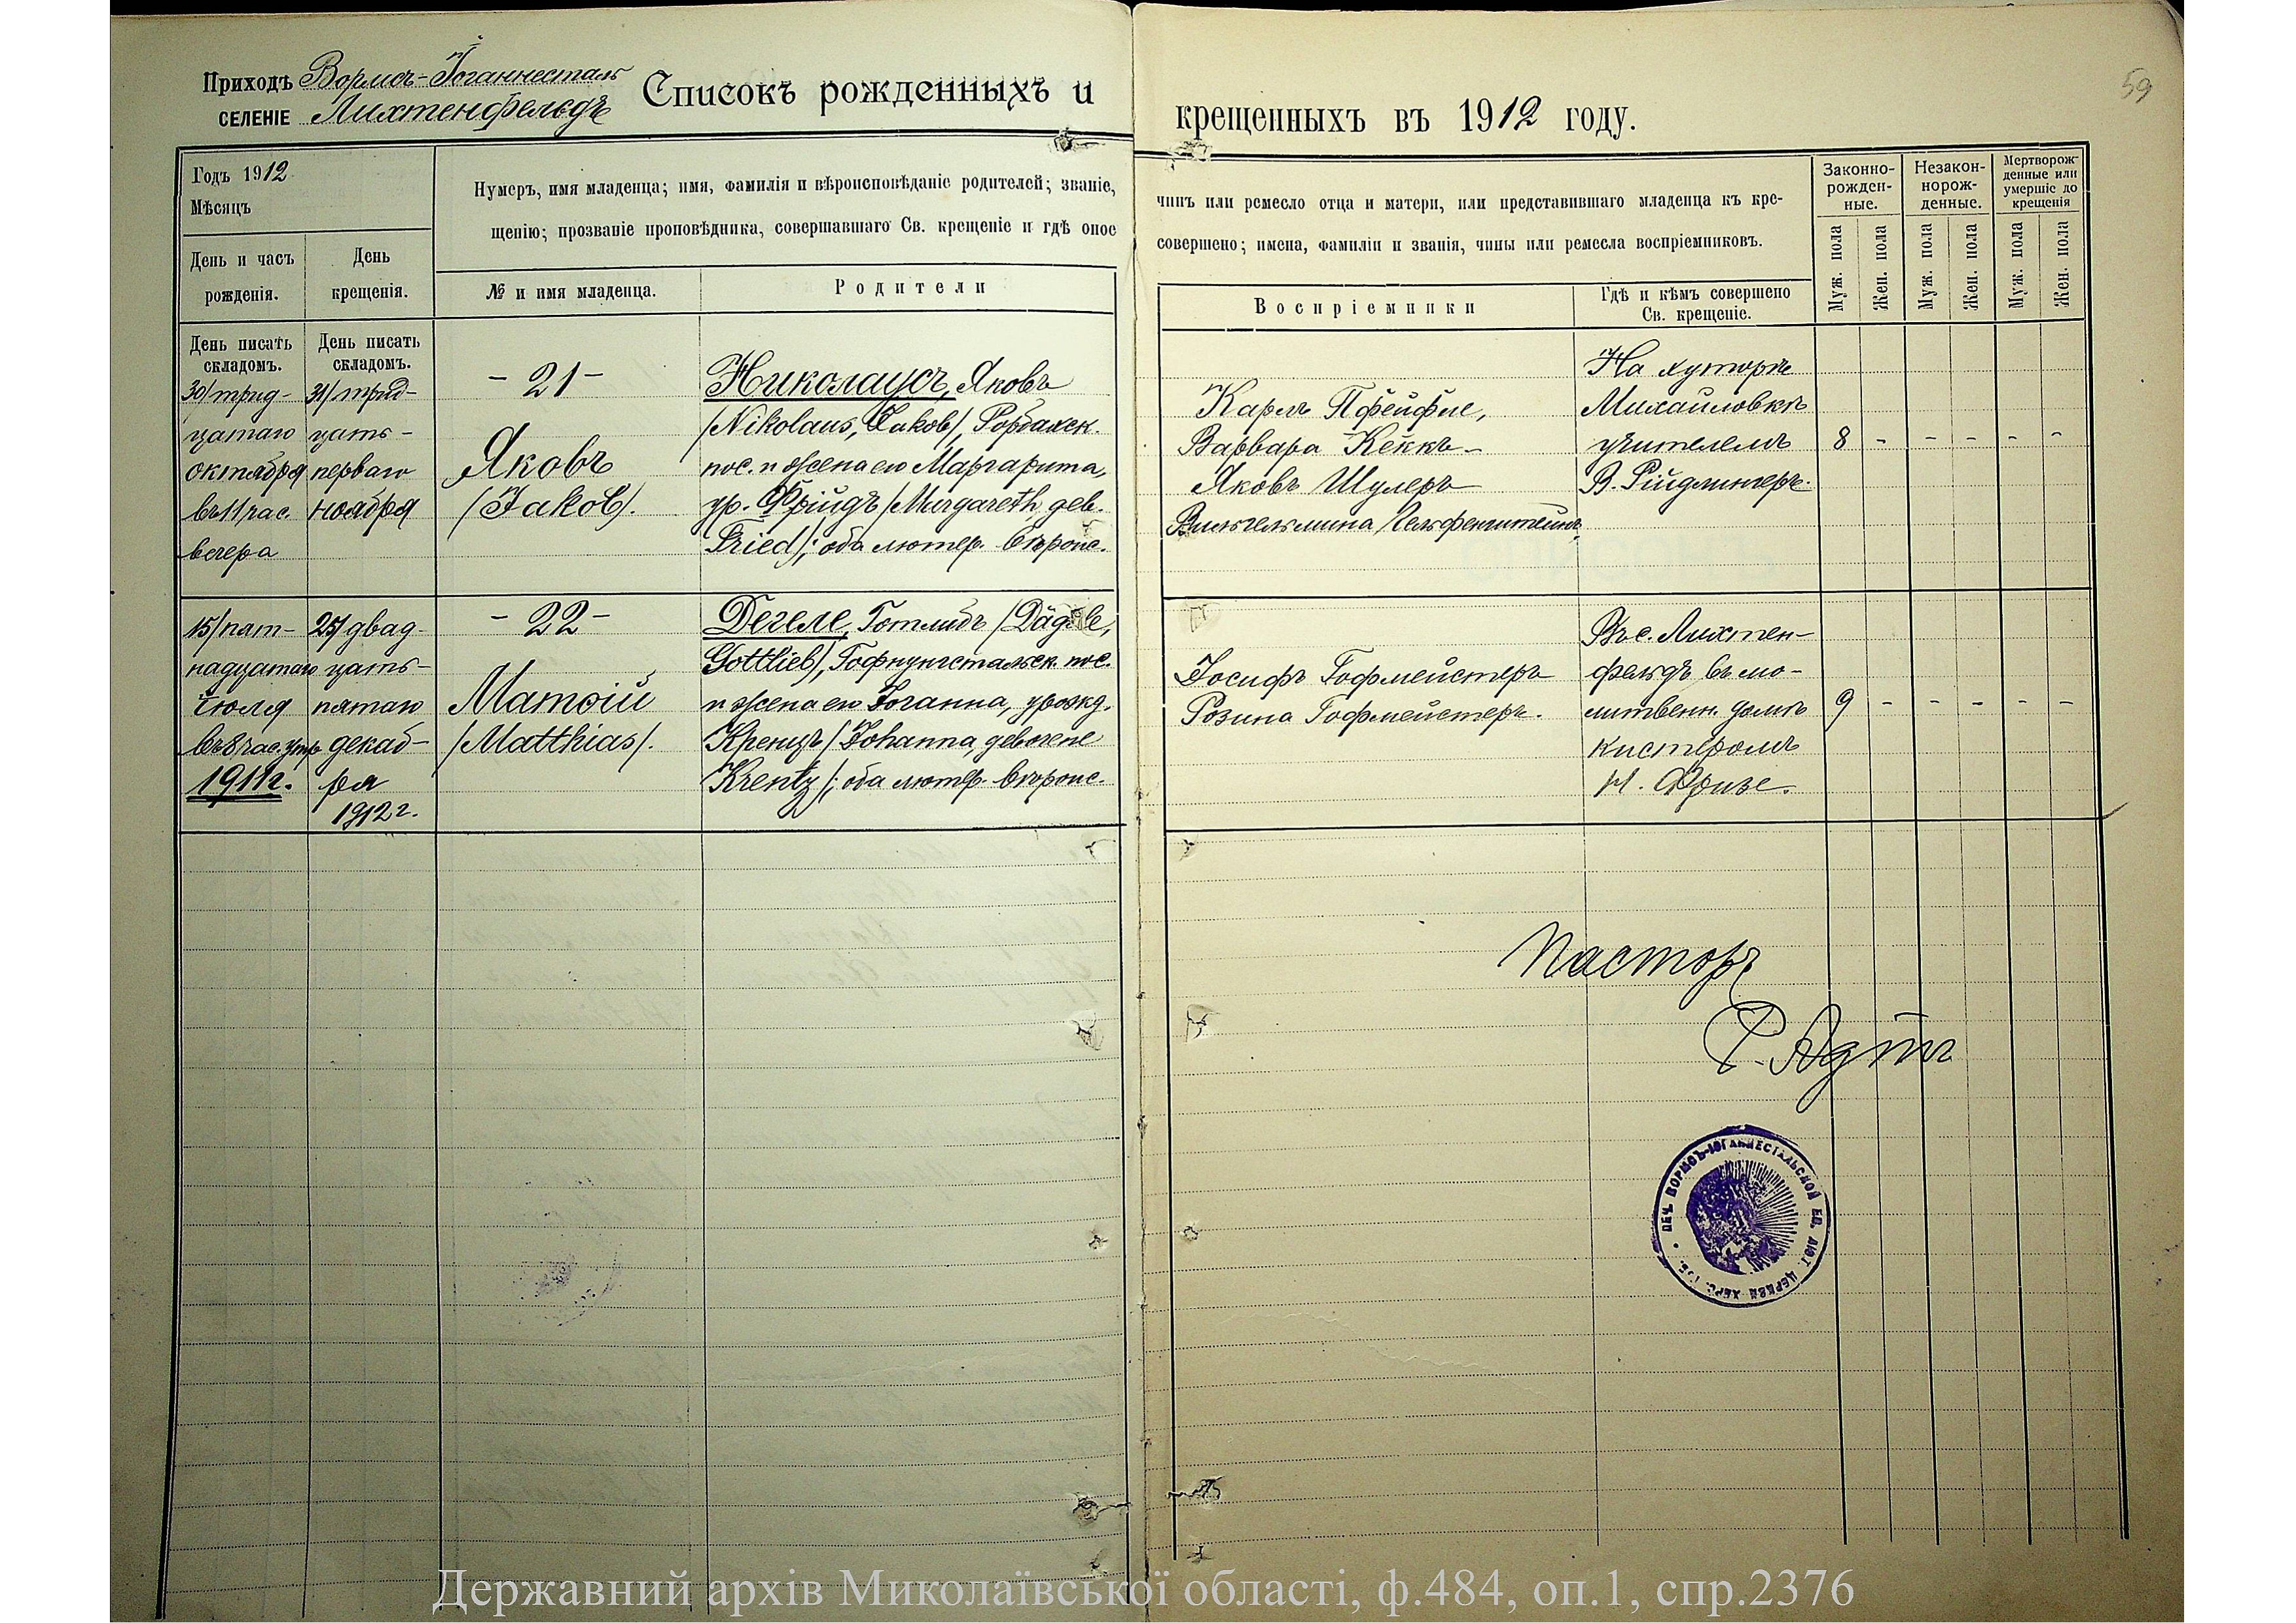 Приходъ Вормсъ-Іоганнесталь
селеніе Лихтенфельдъ
Списокъ рожденныхъ и
крещенныхъ въ 1912 году.
59
Годъ 1912
Мѣсяцъ
День и часъ
рожденія.
День
крещенія.
Нумеръ, имя младенца; имя, фамилія и вѣроисповѣданіе родителей; званіе,
щенію; прозваніе проповѣдника, совершавшаго Св. крещеніе и гдѣ оное
№ и имя младенца.
Родители
чинъ или ремесло отца и матери, или представившаго младенца къ кре-
совершено; имена, фамиліи и званія, чины или ремесла воспріемниковъ.
Воспріемники
Гдѣ и кѣмъ совершено
Св. крещеніе.
Законно-
рожден-
ные.
Незакон-
норож-
денные.
Мертворож-
денные или
умершіе до
крещенія
Муж. пола
Жен. пола
Муж. пола
Жен. пола
Муж. пола
Жен. пола
День писать
складомъ.
30/трид-
цатаго
октября
въ 11 час.
вечера
День писать
складомъ.
31/трид-
цать-
перваго
ноября
- 21 -
Яковъ
/Jakob/.
Николаусъ, Яковъ
/Nikolaus, Jakob/, Рорбахск.
пос. и жена его Маргарита,
ур. Фрійдъ /Margareth geb.
Fried/; оба лютер. вѣроис.
Карлъ Пфейфле,
Варвара Кеккъ-
Яковъ Шулеръ
Вильгельмина
На хуторѣ
Михайловкѣ
учителемъ
В. Рйдлингеръ.
8 - - - - -
15/пят-
надцатаго
іюля
въ 8 час. утр
1911г.
25/двад-
цать-
пятаго
декаб-
ря
1912 г.
- 22 -
Матѳій
/Matthias/.
Дегеле, Готлибъ /Dägele,
Gottlieb/, Гофнунгстальск. пос.
и жена его Іоганна, урожд.
Кренцъ /Johanna, geborene
Krentz/; оба лютер. вѣроис.
Іосифъ Гофмейстеръ
Розина Гофмейстеръ.
Въ с. Лихтен-
фельдъ въ мо-
литвенн. домѣ
кистеромъ
Фризе.
9 - - - - -
Пасторъ
Р. Адтъ
ПЕЧ. ВОРМСЪ-ІОГАННЕСТАЛЬСКОЙ ЕВ. ЛЮТ. ЦЕРКВИ ХЕРС. ГУБ.
Державний архів Миколаївської області, ф.484, оп.1, спр.2376